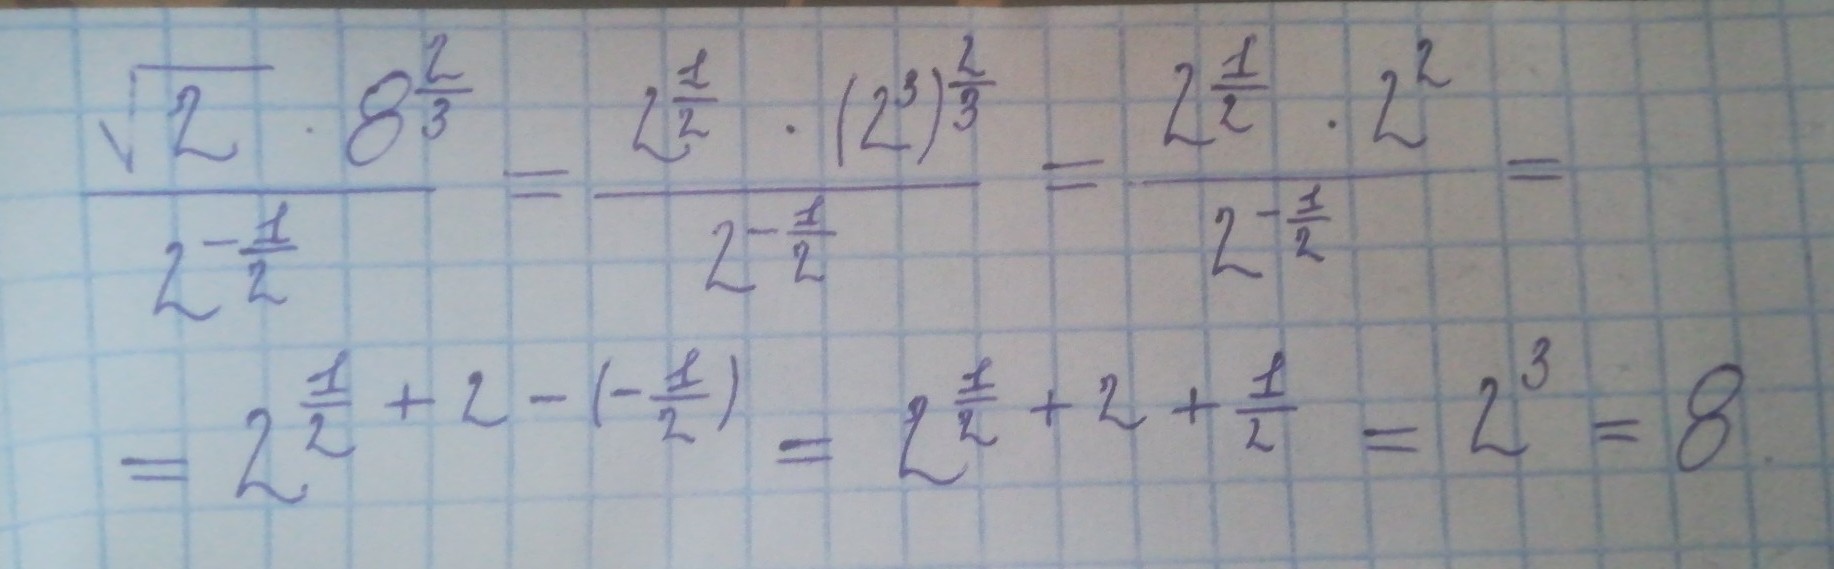 \frac{\sqrt{2} \cdot 8^{\frac{2}{3}}}{2^{-\frac{1}{2}}} = \frac{2^{\frac{1}{2}} \cdot (2^3)^{\frac{2}{3}}}{2^{-\frac{1}{2}}} = \frac{2^{\frac{1}{2}} \cdot 2^2}{2^{-\frac{1}{2}}} =
= 2^{\frac{1}{2} + 2 - (-\frac{1}{2})} = 2^{\frac{1}{2} + 2 + \frac{1}{2}} = 2^3 = 8.